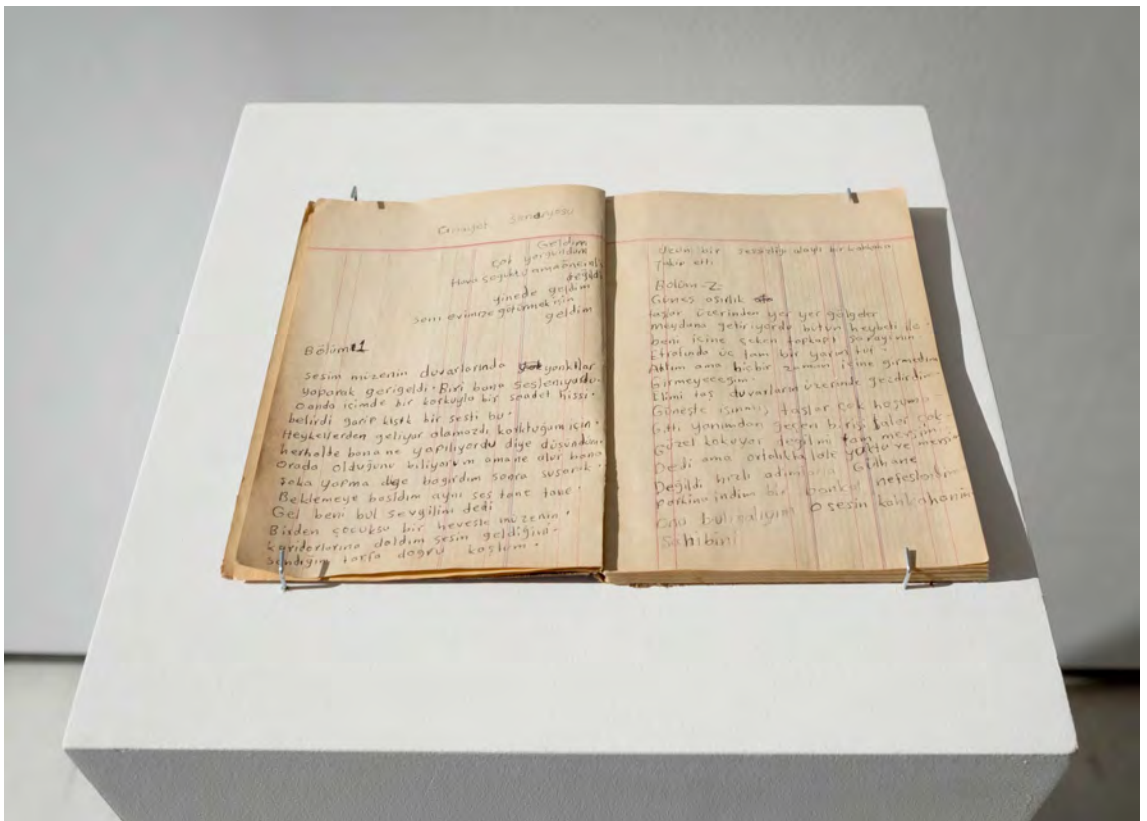 Cinayet Senaryosu
Geldim
Çok yorgundum
Hava soğuktu ama önemli
değildi
yinede geldim
seni evimize götürmek için
geldim
Bölüm 1
Sesim müzenin duvarlarında yankılar
yaparak geri geldi. Biri bana sesleniyordu.
O anda içimde bir korkuyla bir saadet hissi.
belirdi garip kısık bir sesti bu.
Heykellerden geliyor olamazdı korktuğum için.
herhalde bana ne yapılıyordu diye düşündüm.
Orada olduğunu biliyorum ama ne olur bana
şaka yapma diye bağırdım sonra susarak.
Beklemeye başldım aynı ses tane tane.
Gel beni bul sevgilim dedi
Birden çocuksu bir hevesle müzenin.
koridorlarına daldım sesin geldiğini.
sandığım tarfa doğru koştum.
bir sessizliği alaylı bir kahkaha
Takip etti
Bölüm-2-
Güneş asırlık
taşlar üzerinden yer yer gölgeler
meydana getiriyordu bütün heybeti ile.
beni içine çeken topkapı sarayının
Etrafında üç tam bir yarım tur.
Attım ama hiçbir zaman içine girmedim
Girmeyeceğim.
Elimi taş duvarların üzerinde gezdirdim.
Güneşte ısınmış taşlar çok hoşuma.
Gitti yanımdan geçen birisi laler çok.
güzel kokuyor değilmi tam mevsimi.
Dedi ama ortalıkta lale yoktu ve mevsimi
Değildi hızlı adımlarla Gülhane
Parkına indim bir bankta nefeslenirim
Onu bulacağım O sesin kahkahanın
Sahibini